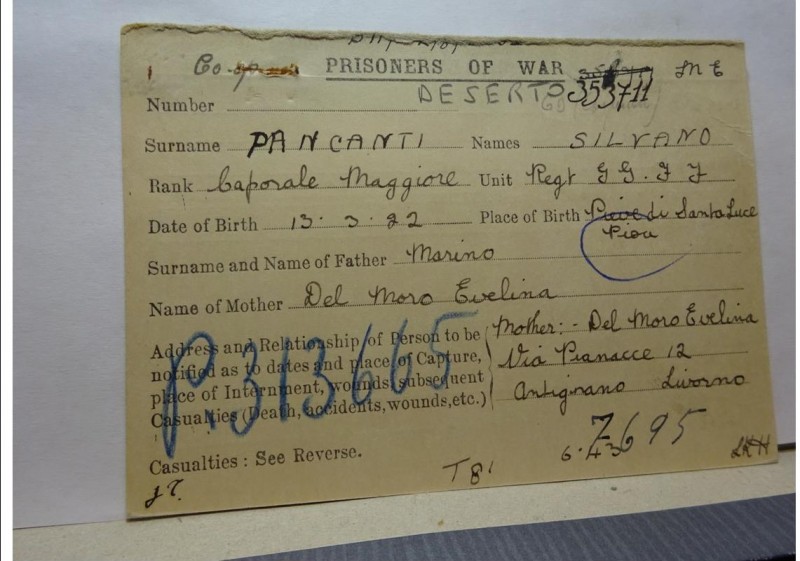 Co-op PRISONERS OF WAR M E
Number DESERTO 353711
Surname PANCANTI Names SILVANO
Rank Caporale Maggiore Unit Regt G G. F F
Date of Birth 13. 3. 22 Place of Birth Pieve di Santa Luce
Surname and Name of Father Marino
Name of Mother Del Moro Evelina
Address and Relationship of Person to be
notified as to dates and place of Capture,
place of Internment, wounds, subsequent
Casualties (Death, accidents, wounds, etc.)
Mother:- Del Moro Evelina
Via Pianacce 12
Antignano Livorno
P.313665
Casualties: See Reverse.
T81
7695
J.T.